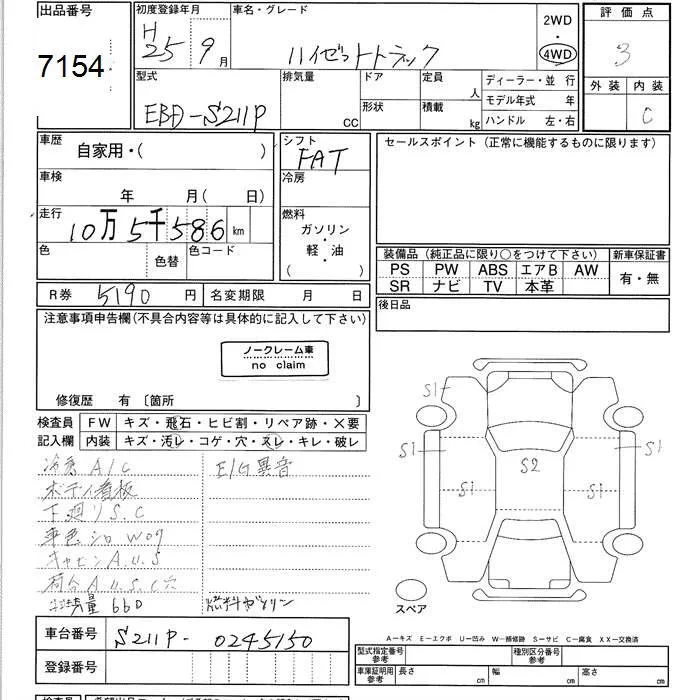 出品番号
7154
初度登録年月
H 25 9月
車名・グレード
ハイゼットトラック
2WD
・
4WD
評価点
3
外装 内装
C
型式
EBD-S211P
排気量
CC
ドア
形状
定員 人
積載 kg
ディーラー・並 行
モデル年式 年
ハンドル 左・右
車歴
自家用・( )
車検
年 月( 日)
走行
10万5千586km
色
色替
色コード
シフト
FAT
冷房
燃料
ガソリン
・
軽・油
( )
セールスポイント(正常に機能するものに限ります)
装備品(純正品に限り○をつけて下さい)
PS PW ABS エアB AW
SR ナビ TV 本革
新車保証書
有・無
R券 5190円
名変期限 月 日
後日品
注意事項申告欄(不具合内容等は具体的に記入して下さい)
ノークレーム車
no claim
修復歴 有〔箇所 〕
検査員
記入欄
FW キズ・飛石・ヒビ割・リペア跡・×要
内装 キズ・汚レ・コゲ・穴・スレ・キレ・破レ
冷房 A/C
ボディ看板
下廻りS.C
車色シロ W09
キャビンA.U.S
荷台A.U.S.C穴
排気量660
E/G異音
燃料ガソリン
S1
S1
S1
S2
S1
S1
スペア
車台番号 S211P-0245150
登録番号
A-キズ E-エクボ U-凹み W-補修跡 S-サビ C-腐食 XX-交換済
型式指定番号
参考
種別区分番号
参考
車庫証明用
参考
長さ cm
幅 cm
高さ cm